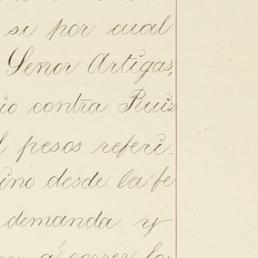 si por cual
Señor Artigas,
io contra Ruiz
l pesos referi-
ino desde la fe
demanda y
a correr la